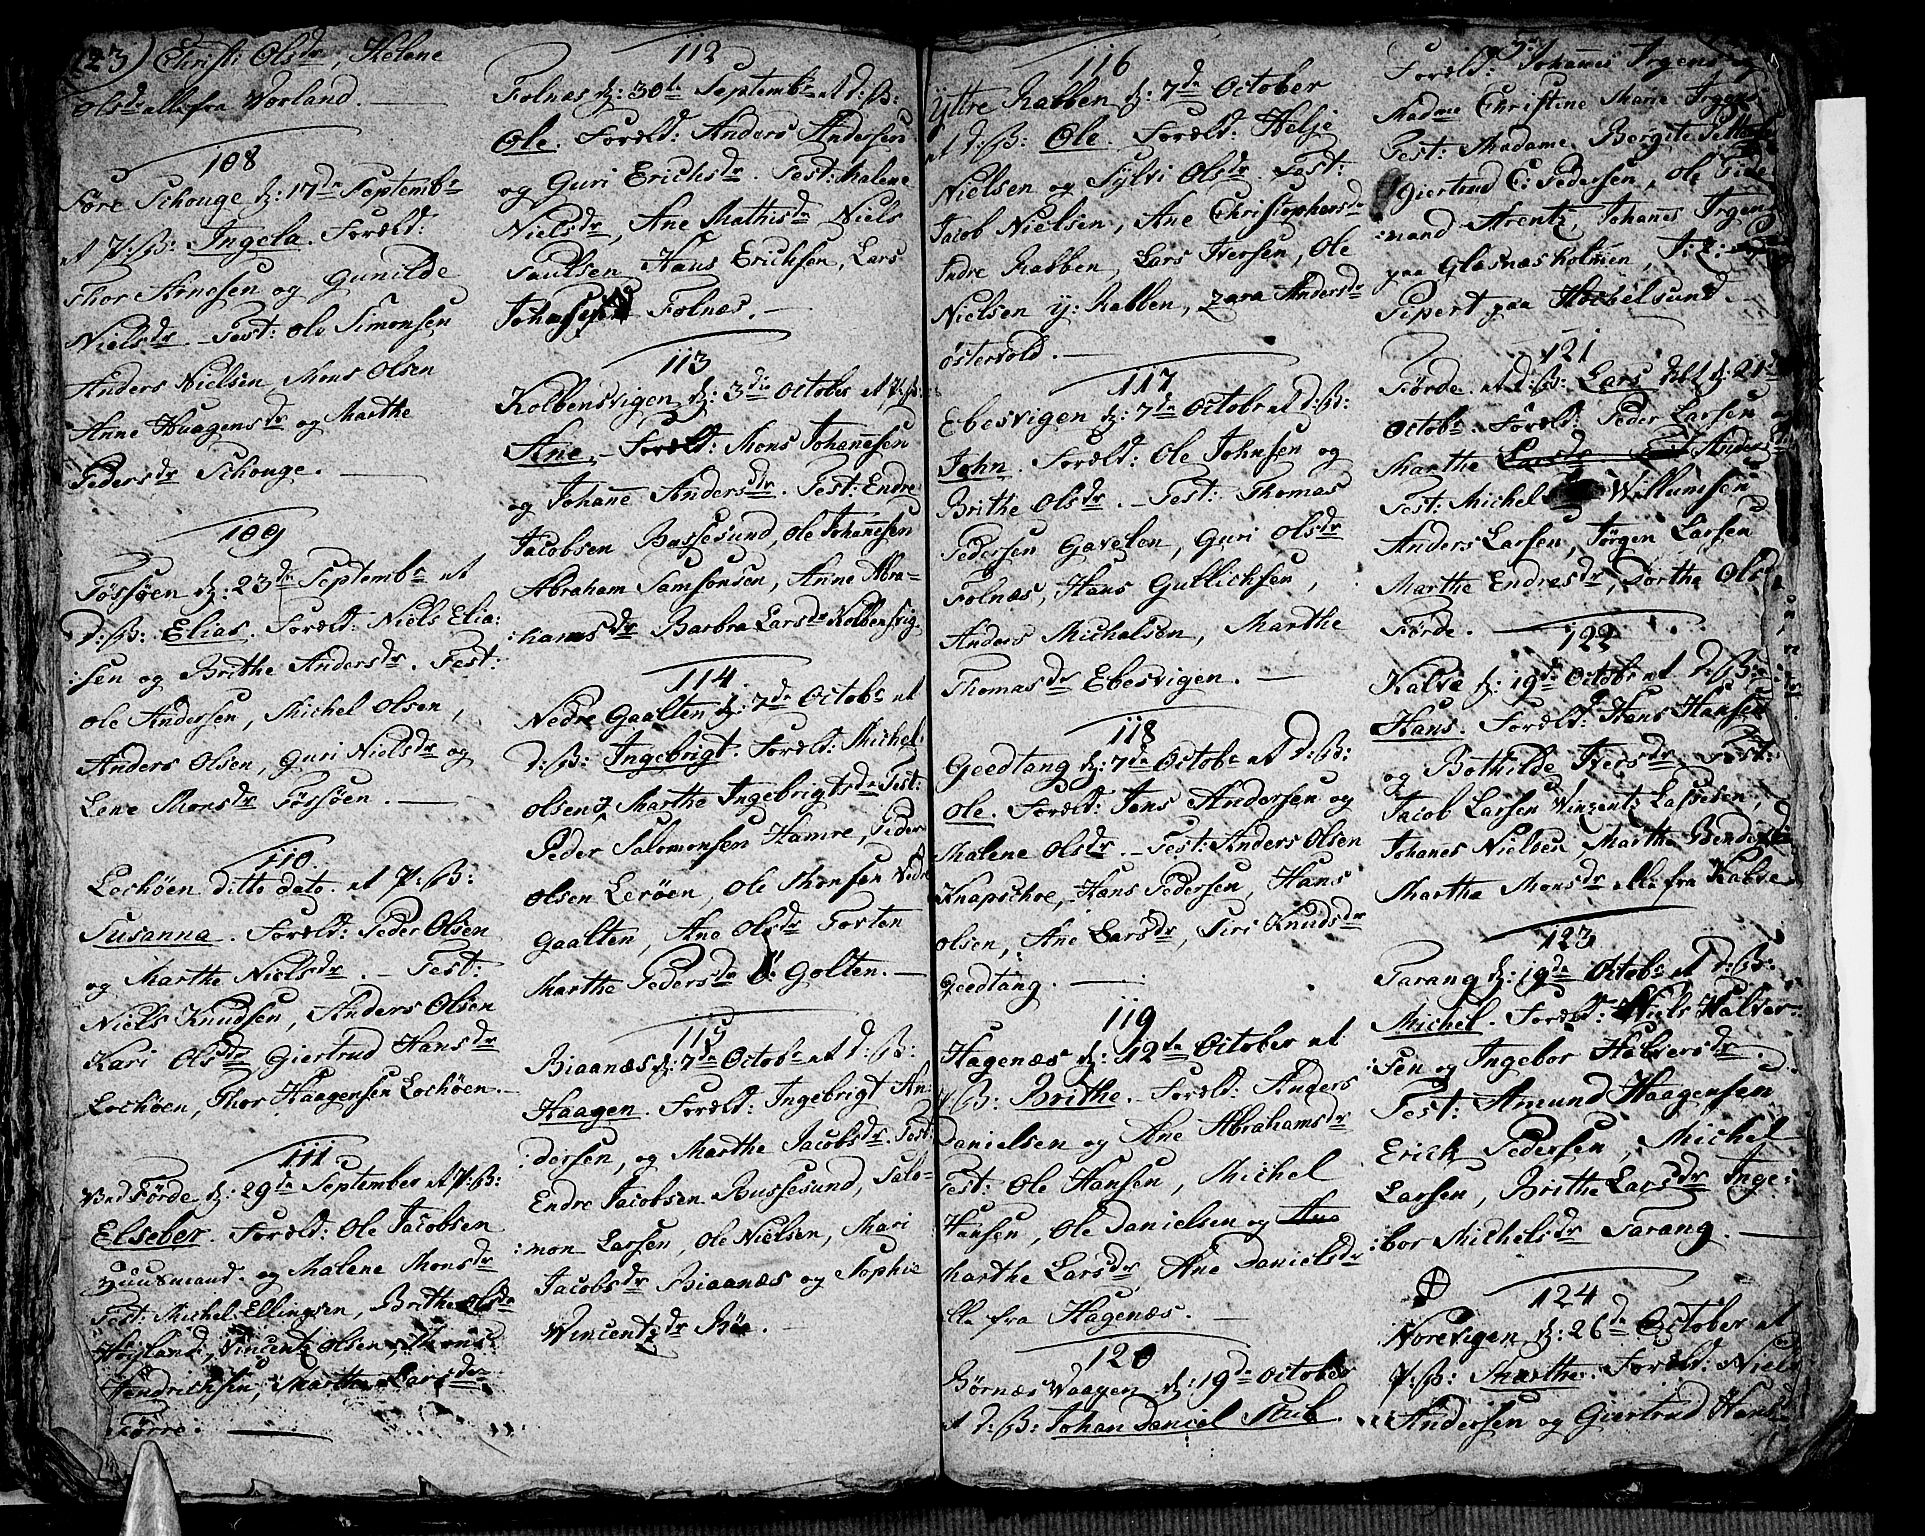 123) Christi Olsdr, Helene
Olsdr alle fra Vorland.
108
Søre Schouge d: 17de Septembr
et P: B: Ingela. Foreld:
Thor Arnesen og Gunilde
Nielsdr Test: Ole Simonsen
Anders Nielsen, Mons Olsen
Anne Haagensdr og Marthe
Pedersdr Schouge.
109
Tøssøen d: 23de Septembr et
D: B: Elias. Foreld: Niels Elia:
:sen og Brithe Andersdr. Test:
Ole Andersen, Michel Olsen,
Anders Olsen, Guri Nielsdr og
Lene Monsdr Tøssøen.
110
Lochøen ditto dato. et P: B:
Susanna. Foreld: Peder Olsen
og Marthe Nielsdr. Test:
Niels Knudsen, Anders Olsen
Kari Olsdr Giertrud Hansdr
Lochøen, Thor Haagensen Lochøen.
111
Førde d: 29de September et P: B:
Elseber. Foreld: Ole Jacobsen
Huusmand. og Malene Monsdr
Test: Michel Ellingsen, Brithe Olsdr
Høyland, Vincentz Olsen, Mons
Hendrichsen, Marthe Larsdr
Førre.
112
Folnæs d: 30te Septembr et D: B:
Ole. Foreld: Anders Andersen
og Guri Erichsdr. Test: Malene
Nielsdr, Ane Mathisdr Niels
Paulsen, Hans Erichsen, Lars
Johansen Folnæs.
113
Kolbensvigen d: 3die Octobr et P: B:
Ane. Foreld: Mons Johanesen
og Johane Andersdr. Test: Endre
Jacobsen Bassesund, Ole Johanesen
Abraham Samsonsen, Anne Abra-
:hamsdr Barbra Larsdr Kolbensvig
114
Nedre Gaalten d: 7de Octobr et
D: B: Ingebrigt. Foreld: Michel
Olsen og Marthe Ingebrigtsdr Test:
Peder Salomonsen Hamre, Peder
Olsen Lerøen, Ole Monsen Nedr
Gaalten, Ane Olsdr Torten
Marthe Pedersdr Golten.
115
Biaanæs d: 7de Octobr et D: B:
Haagen. Foreld: Ingebrigt An:
:dersen, og Marthe Jacobsdr. Test:
Endre Jacobsen Bussesund, Salo-
:mon Larsen, Ole Nielsen, Mari
Jacobsdr Biaanæs og Sophie
Wincentzdr Bøe.
116
Yttre Rabben d: 7de October
et D: B: Ole. Foreld: Helje
Nielsen og Sylvi Olsdr. Test:
Jacob Nielsen, Ane Christophersdr
Indre Rabben, Lars Iversen, Ole
Nielsen y: Rabben, Zara Andersdr
Østervold.
117
Ebesvigen d: 7de Octobr et D: B:
John. Foreld: Ole Johnsen og
Brithe Olsdr. Test: Thomas
Pedersen Gavelen, Guri Olsdr
Folnæs, Hans Gullichsen,
Anders Michelsen, Marthe
Thomasdr Ebesvigen.
118
Geedtang d: 7de Octobr et D: B:
Ole. Foreld: Jens Andersen og
Malene Olsdr. Test: Anders Olsen
Knapschre, Hans Pedersen, Hans
Olsen, Ane Larsdr, Siri Knudsdr
Geedtang.
119
Hagenæs d: 12te October et
P: B: Brithe. Foreld: Anders
Danielsen og Ane Abrahamsdr
Test: Ole Hansen, Michel
Hansen, Ole Danielsen og Ane
Marthe Larsdr Ane Danielsdr
alle fra Hagenæs.
120
Børnæs Vaagen d: 19de October
et D: B: Johan Daniel
Foreld: Johannes Irgens og
Madme Christine Marie Irgens
Test: Madame Bergite
Giertrud C: Pedersen, Ole Fide
:nand Arentz, Johannes Irgens
paa Glæsnæsholmen, J: Z:
Pipert paa Hochelsund.
121
Førde. et D: B: Lars d: 21de
Octobr. Foreld: Peder Larsen og
Marthe Larsdr Andersdr
Test: Michel Willumsen
Anders Larsen, Jørgen Larsen
Marthe Endresdr, Dorthe Olsdr
Førde.
122
Kalve d: 19de Octobr et D: B:
Hans. Foreld: Hans Hansen
og Bothilde Iversdr, Test:
Jacob Larsen Vincentz Lassesen,
Johanes Nielsen, Marthe
Marthe Monsdr alle fra Kalve
123
Tarang d: 19de Octobr et D: B:
Michel. Foreld: Niels Halver-
sen og Ingebor Halversdr.
Test: Amund Haagensen
Erick Pedersen, Michel
Larsen, Brithe Larsdr Inge:
:bor Michelsdr Tarang.
124
Norevigen d: 26de October et
P: B: Marthe. Foreld: Niels
Andersen og Giertrud Hansdr